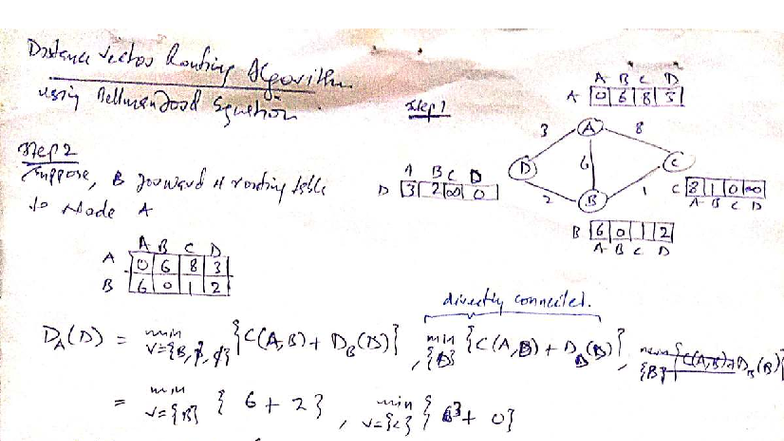 Distance vector Routing Algorithm
using Bellman Ford Equation
Step 1
A B C D
A 0 6 8 3
3 A 8
D 6 C
2 B 1
A B C D
D 3 2 ∞ 0
C 8 1 0 ∞
A B C D
B 6 0 1 2
A B C D
Step 2
Suppose, B forward it routing table
to Node A
A B C D
A 0 6 8 3
B 6 0 1 2
directly connected.
D_A(D) = min V={B, {C(A,B) + D_B(D)}, min {D} {C(A,D) + D_D(D)}, min {B}
= min V={B} {6 + 2}, min V={ {3 + 0}